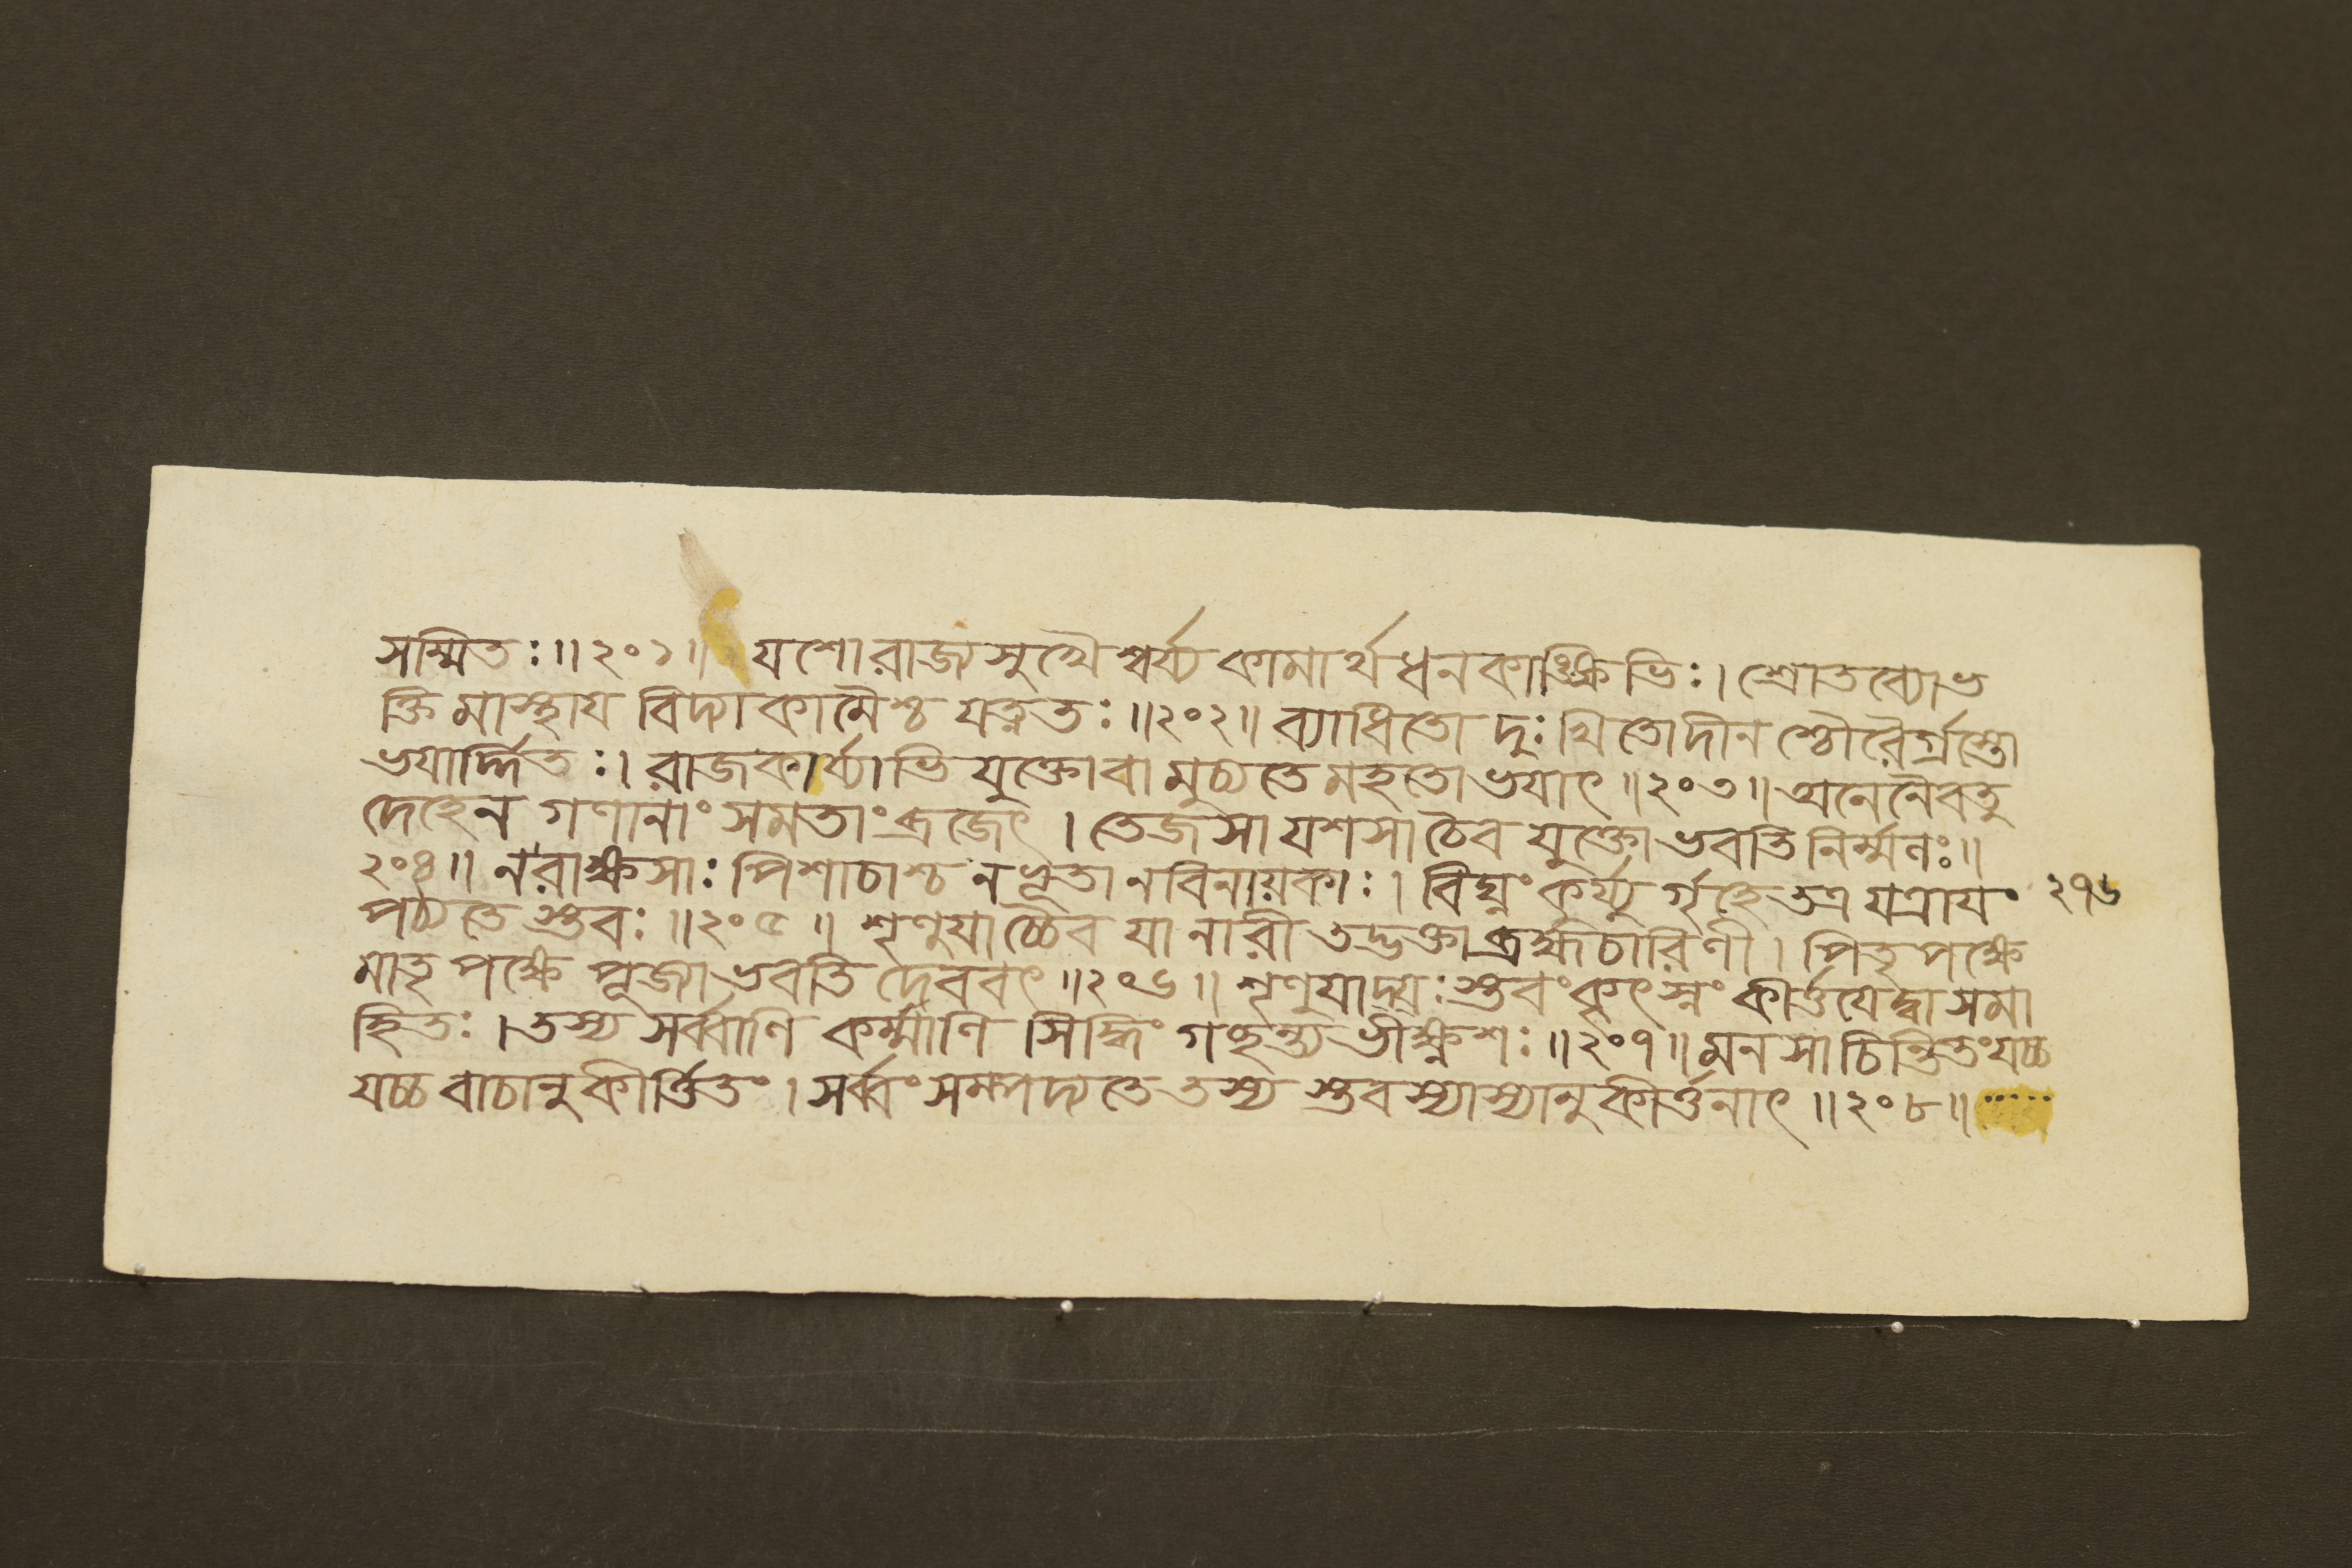 সম্মিতঃ॥২০১॥ যশোরাজ্যসুখৈশ্বর্য্যকামার্থধনকাঙ্ক্ষিভিঃ।শ্রোতব্যোভ
ক্তিমাস্থায বিদ্যাকামৈশ্চ যত্নতঃ॥২০২॥ ব্যাধিতো দুঃখিতোদীনশ্চৌরৈর্গ্রস্তো
ভযার্দ্দিতঃ।রাজকার্য্যাভিযুক্তোবা মুচ্যতে মহতো ভযাৎ॥২০৩॥অনেনৈবতু
দেহেন গণানাং সমতাং ব্রজেৎ।তেজসা যশসাচৈব যুক্তো ভবতি নির্ম্মলঃ॥
২০৪॥ নরাক্ষসাঃ পিশাচাশ্চ নভূতা নবিনায়কাঃ।বিঘ্নং কুর্য্যুর্গৃহেতত্র যত্রাযং
পঠ্যতে স্তবঃ॥২০৫॥ শৃণুযাচ্চৈব যা নারী তদ্ভক্তা ব্রহ্মচারিণী।পিতৃপক্ষে
মাতৃপক্ষে পূজ্যা ভবতি দেববৎ॥২০৬॥ শৃণুযাদ্যঃস্তবংকৃৎস্নং কীর্ত্তযেদ্বা সমা
হিতঃ।তস্য সর্ব্বাণি কর্ম্মাণি সিদ্ধিং গচ্ছন্ত্যভীক্ষ্ণশঃ॥২০৭॥মনসাচিন্তিতংযচ্চ
যচ্চ বাচানুকীর্ত্তিতং।সর্ব্বংসম্পদ্যতে তস্য স্তবস্যাস্যানুকীর্ত্তনাৎ॥২০৮॥
২৭৬